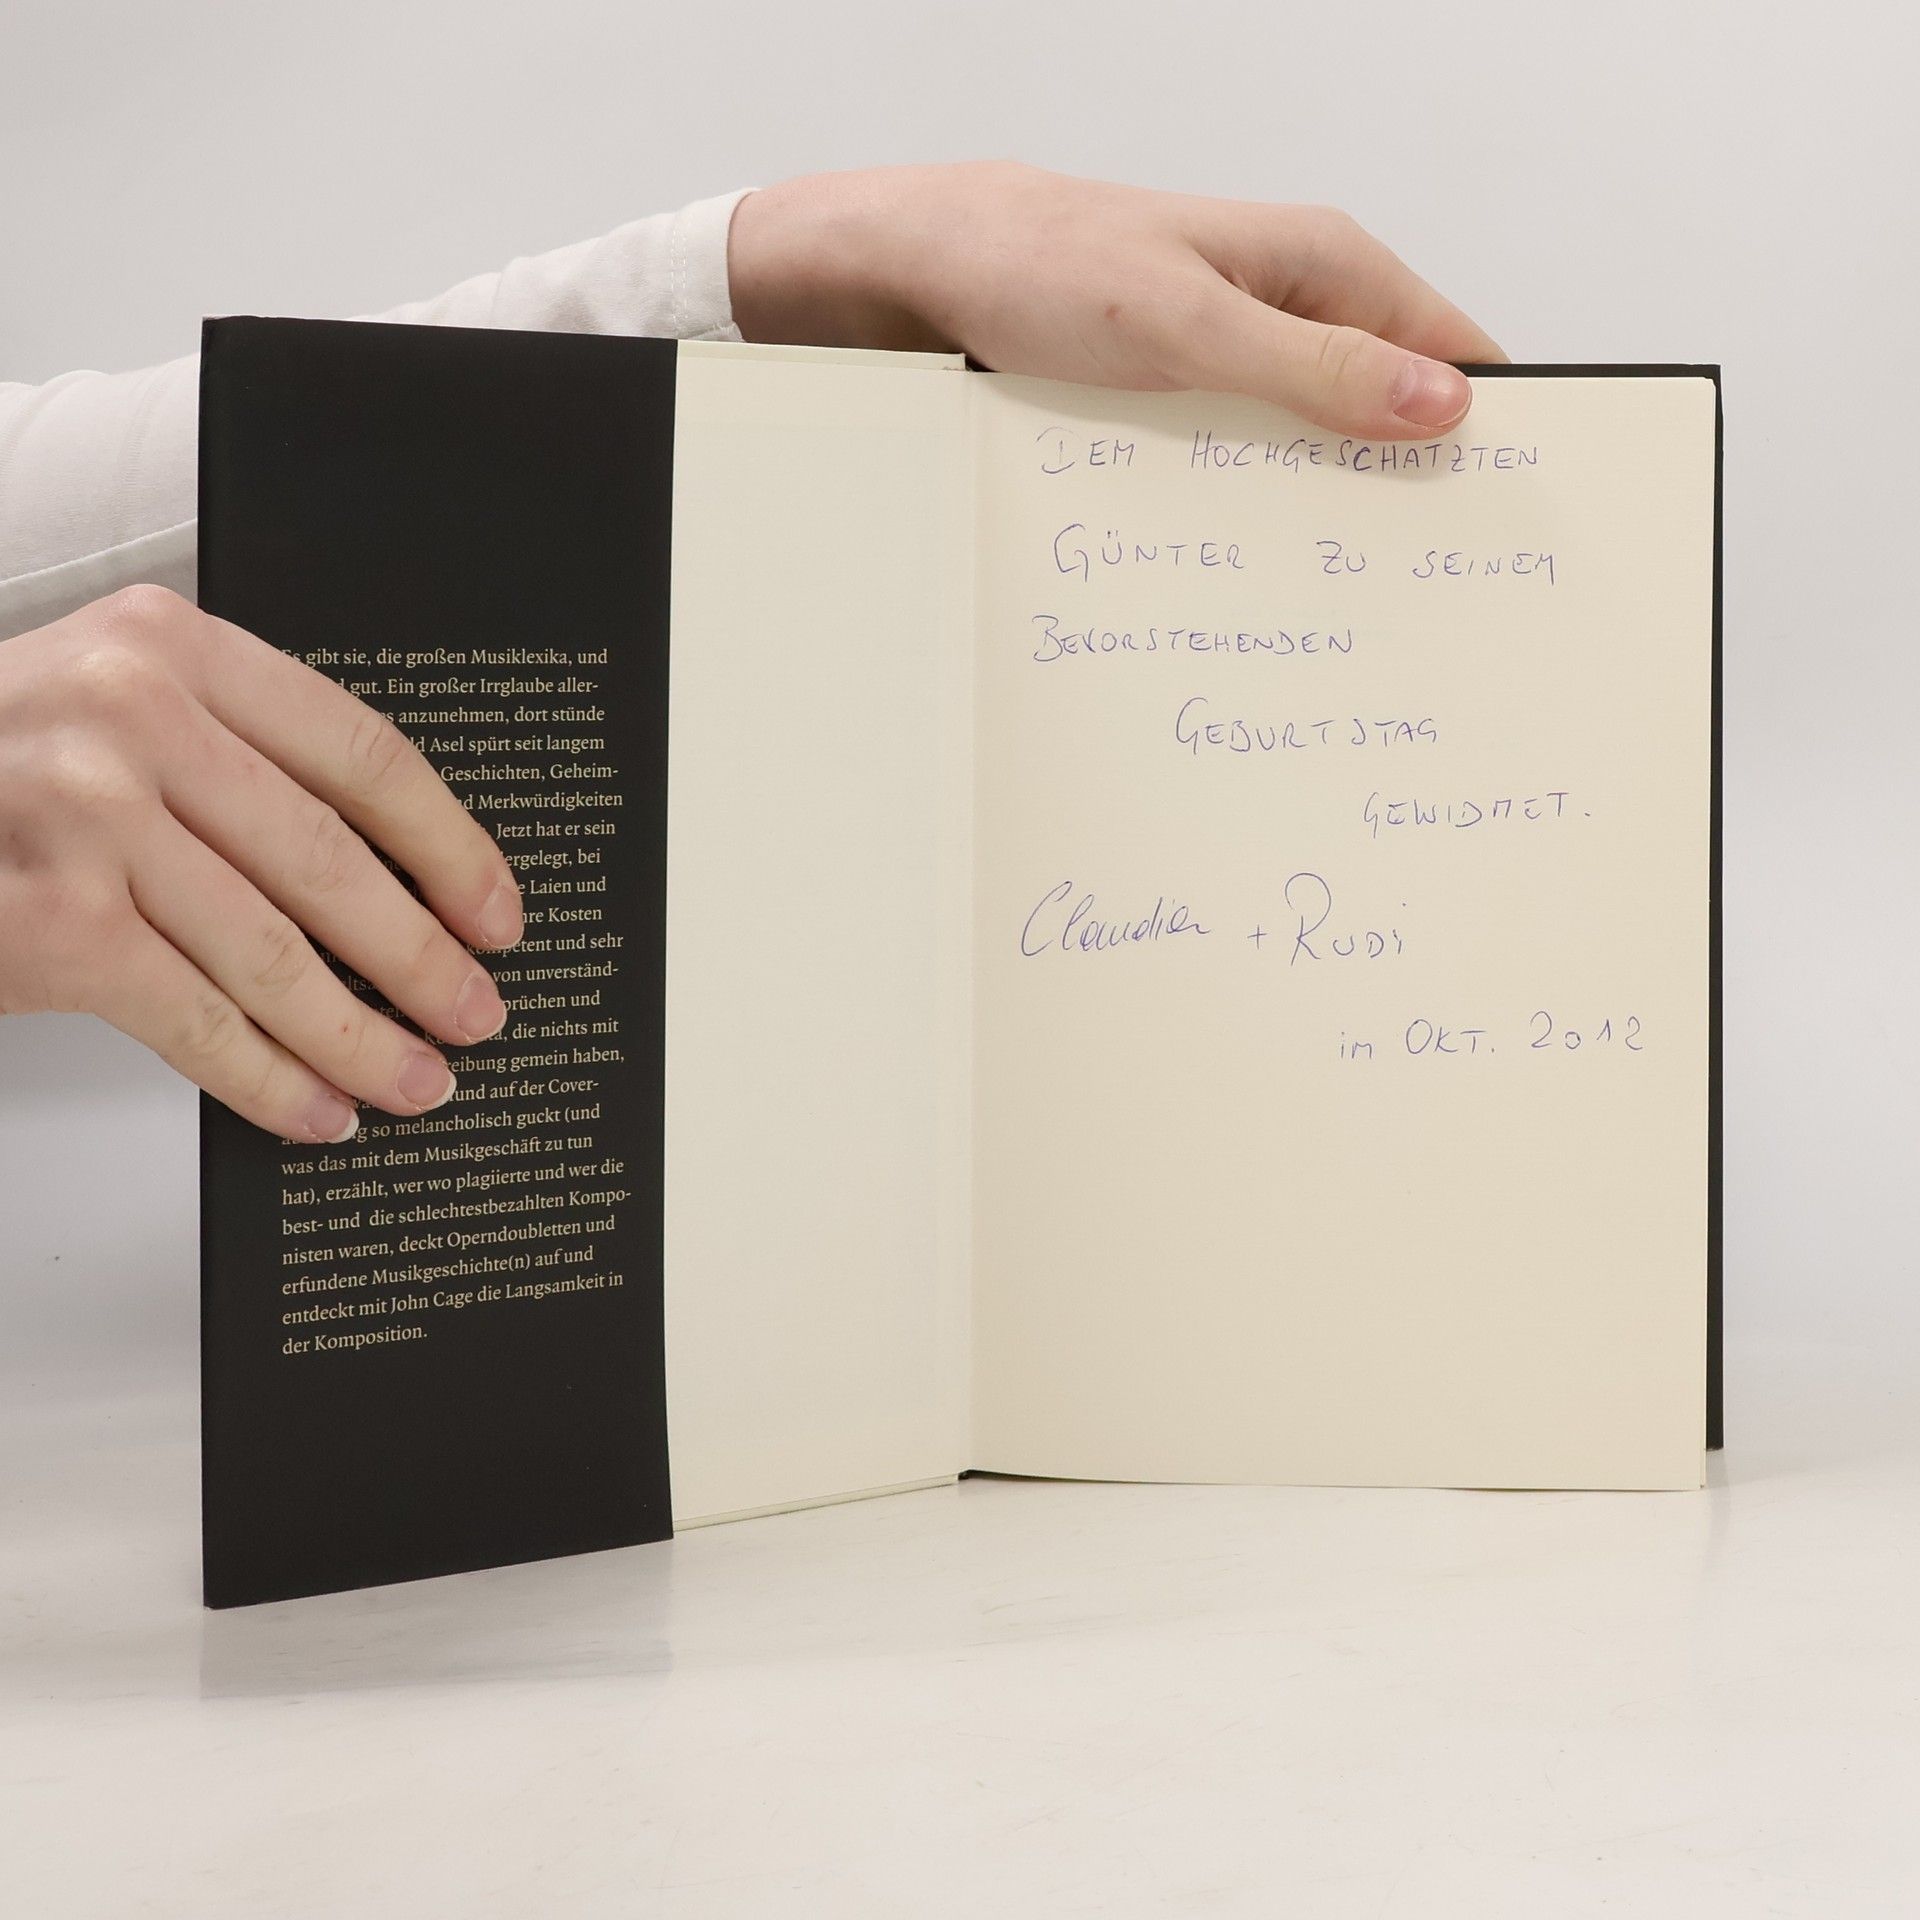 Es gibt sie, die großen Musiklexika, und
gut. Ein großer Irrglaube aller-
anzunehmen, dort stünde
Asel spürt seit langem
Geschichten, Geheim-
Merkwürdigkeiten
Jetzt hat er sein
ergelegt, bei
Laien und
Kosten
kompetent und sehr
von unverständ-
und
die nichts mit
gemein haben,
und auf der Cover-
so melancholisch guckt (und
was das mit dem Musikgeschäft zu tun
hat), erzählt, wer wo plagiierte und wer die
best- und die schlechtestbezahlten Kompo-
nisten waren, deckt Operndoubletten und
erfundene Musikgeschichte(n) auf und
entdeckt mit John Cage die Langsamkeit in
der Komposition.
DEM HOCHGESCHATZTEN
GÜNTER ZU SEINEM
BEVORSTEHENDEN
GEBURTSTAG
GEWIDMET.
Claudia + RUDi
im OKT. 2012